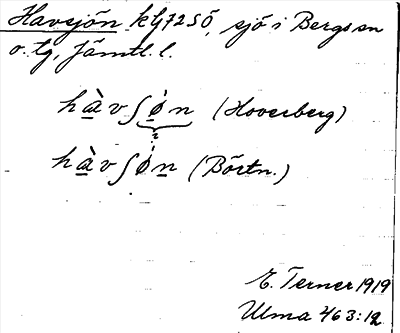 Havsjön kfy72SÖ, sjö i Bergs sn
o. tg, Jämtl. l.
hàvʃö̀n (Hoverberg)
hàvʃö̀n (Börtn.)
E. Terner 1919
Ulma 463:12